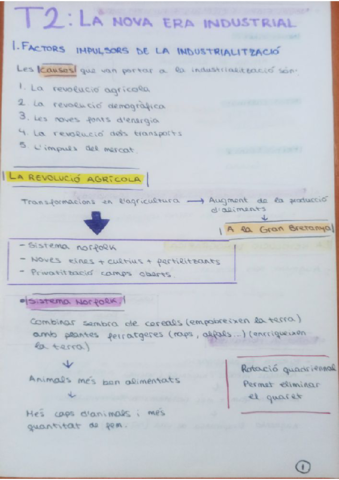 T2: LA NOVA ERA INDUSTRIAL
1. FACTORS IMPULSORS DE LA INDUSTRIALITZACIÓ
Les causes que van portar a la industrialització són:
1. La revolució agrícola
2. La revolució demogràfica
3. Les noves fonts d'energia
4. La revolució dels transports
5. L'impuls del mercat.
LA REVOLUCIÓ AGRÍCOLA
Transformacions en l'agricultura → Augment de la producció
d'aliments
A la Gran Bretanya
- Sistema norfolk
- Noves eines + cultius + fertilitzants
- Privatització camps oberts
• Sistema Norfolk
Combinar sembra de cereals (empobreixen la terra)
amb plantes farratgeres (naps, alfals...) (enriqueixen
la terra)
Animals més ben alimentats
Més caps d'animals i més
quantitat de fem.
Rotació quadriennal
Permet eliminar
el guaret
1